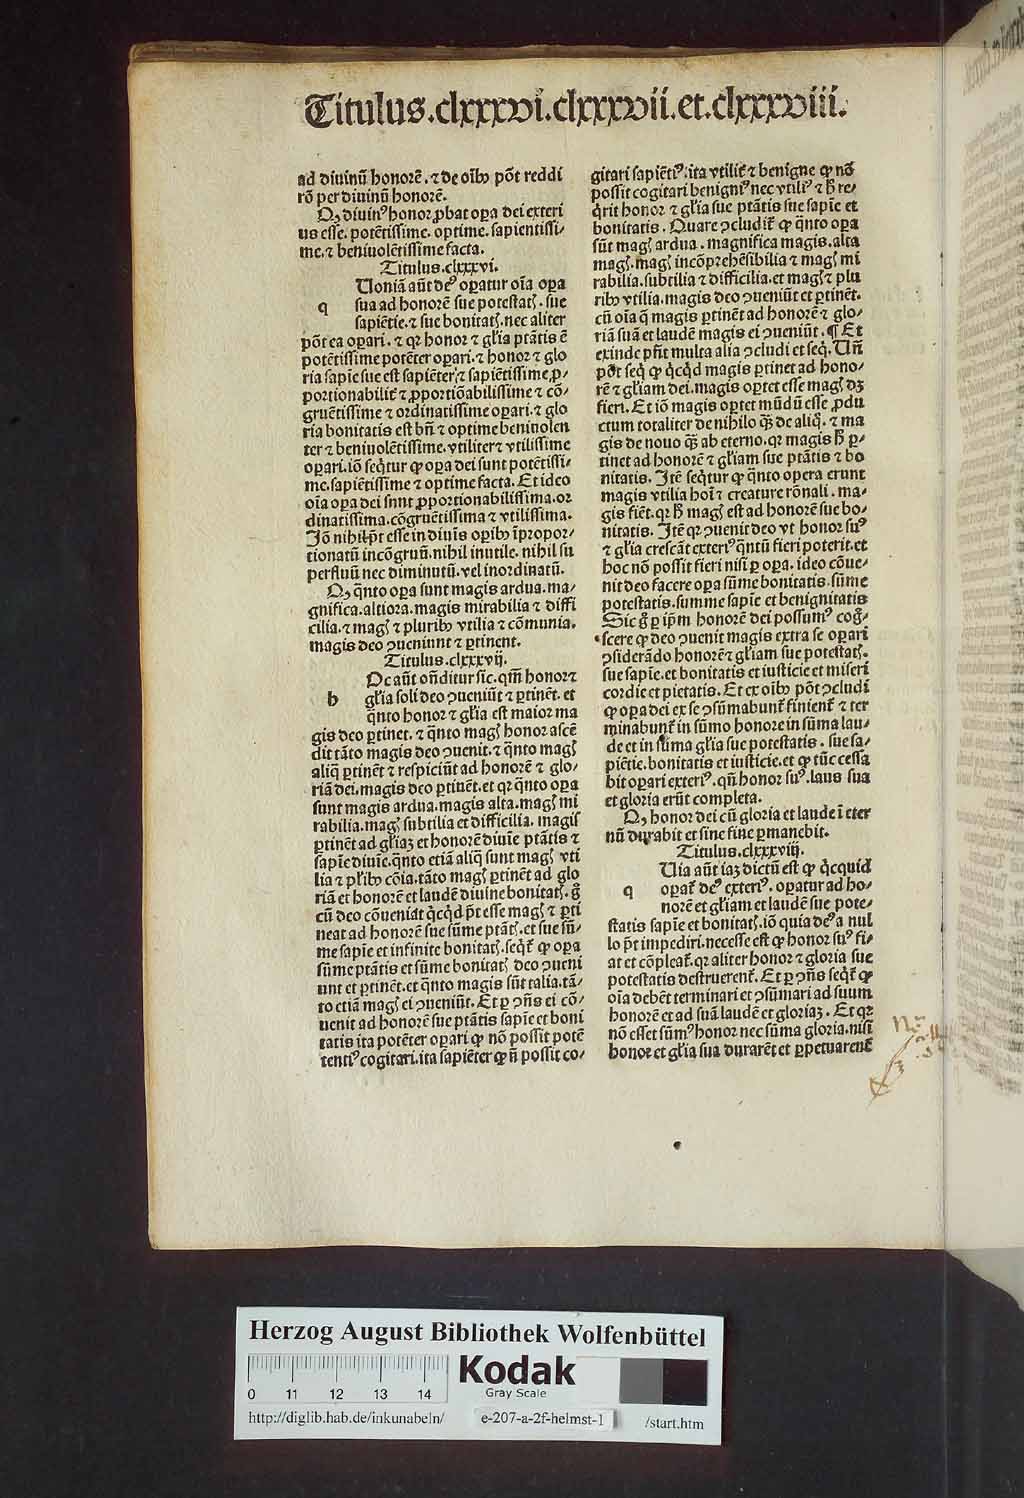 Titulus.clxxxvi.clxxxvii.et.clxxxviii.
ad diuinū honorē.⁊ de oīb᷒ pōt reddi
rō per diuinū honorē.
Q, diuin᷒ honor ꝓbat oꝑa dei exteri
us esse. potētissime. optime. sapientissi⸗
me.⁊ beniuolētissime facta.
Titulus.clxxxvi.
Uoniā aūt de᷒ oꝑatur oīa oꝑa
q sua ad honorē sue potestatꝭ. sue
sapiētie.⁊ sue bonitatꝭ.nec aliter
pōt ea oꝑari. ⁊ qꝛ honor ⁊ gl'ia ptātis ē
potētissime potēter oꝑari.⁊ honor ⁊ glo
ria sapie sue est sapiēter ⁊ sapiētissime,ꝓ⸗
portionabilit̄ ⁊ ꝓportiōabilissime ⁊ cō⸗
gruētissime ⁊ ordinatissime oꝑari.⁊ glo
ria bonitatis est bn̄ ⁊ optime beniuolen
ter ⁊ beniuolētissime.vtiliter⁊ vtilissime
oꝑari.iō seq̄tur ꝙ oꝑa dei sunt potētissi⸗
me.sapiētissime ⁊ optime facta. Et ideo
oīa oꝑa dei snnt ꝓportionabilissima.or
dinatissima.cōgruētissima ⁊ vtilissima.
Iō nihil pt̄ esse in diuīs oꝑib᷒ īpropor⸗
tionatū incōgruū.nihil inutile. nihil su
perfluū nec diminutū.vel inordinatū.
Q, qn̄to oꝑa sunt magis ardua.ma⸗
gnifica.altiora.magis mirabilia ⁊ diffi
cilia.⁊ magꝭ ⁊ plurib᷒ vtilia ⁊ cōmunia.
magis deo ꝯueniunt ⁊ ꝑtinent.
Titulus.clxxxvij.
Oc aūt on̄ditur sic. qm̄ honor⁊
h gl'ia soli deo ꝯueniūt ⁊ ꝑtinēt. et
qn̄to honor ⁊ gl'ia est maior ma
gis deo ꝑtinet. ⁊ qn̄to magꝭ honor ascē
dit tāto magis deo ꝯuenit.⁊ qn̄to magꝭ
aliq̄ ꝑtinēt ⁊ respiciūt ad honorē ⁊ glo⸗
riā dei.magis deo ꝑtinēt.et qꝛ qn̄to oꝑa
sunt magis ardua.magis alta.magꝭ mi
rabilia.magꝭ subtilia et difficilia. magis
ꝑtinēt ad gl'iaꝫ et honorē diuīe ptātis ⁊
sapīe diuīe.qn̄to etiā aliq̄ sunt magꝭ vti
lia ⁊ pl'ib᷒ cōia.tāto magꝭ ꝑtinēt ad glo
riā et honorē et laudē diuine bonitatꝭ. g̊
cū deo cōueniāt q̄cq̄d pt̄ esse magꝭ ⁊ ꝑti
neat ad honorē sue sūme ptātꝭ.et sue sū⸗
me sapie et infinite bonitatꝭ.seq̄t̄ ꝙ oꝑa
sūme ptātis et sūme bonitatꝭ deo ꝯueni
unt et ꝑtinēt.et qn̄to magis sūt talia.tā⸗
to etiā magꝭ ei ꝯueniūt. Et ꝑ ꝯn̄s ei cō⸗
uenit ad honorē sue ptātis sapīe et boni
tatis ita potēter oꝑari ꝙ nō possit potē
tenti᷒ cogitari.ita sapiēter ꝙ n̄ possit co⸗
gitari sapiēti᷒.ita vtilit̄ ⁊ benigne ꝙ nō
possit cogitari benigni᷒ nec vtili᷒ ⁊ h̄ re⸗
q̄rit honor ⁊ gl'ia sue ptātis sue sapīe et
bonitatis. Quare ꝯcludit̄ ꝙ qn̄to oꝑa
sūt magꝭ ardua. magnifica magis.alta
magꝭ.magꝭ incōprehēsibilia ⁊ magꝭ mi
rabilia.subtilia ⁊ difficilia.et magꝭ ⁊ plu
rib᷒ vtilia.magis deo ꝯueniūt et ꝑtinēt.
cū oīa q̄ magis ꝑtinēt ad honorē ⁊ glo⸗
riā suā et laudē magis ei ꝯueniūt. ¶ Et
exinde pn̄t multa alia ꝯcludi et seq̄. Un̄
pōt seq̄ ꝙ q̄cq̄d magis ꝑtinet ad hono⸗
rē ⁊ gl'iam dei.magis oꝑtet esse magꝭ dꝫ
fieri. Et iō magis oꝑtet mūdū esse ꝓdu
ctum totaliter de nihilo q̄ꝫ de aliq̄. ⁊ ma
gis de nouo q̄ꝫ ab eterno.qꝛ magis h̄ ꝑ⸗
tinet ad honorē ⁊ gl'iam sue ptātis ⁊ bo
nitatis. Itē seq̄tur ꝙ qn̄to opera erunt
magis vtilia hoī ⁊ creature rōnali. ma⸗
gis fiēt.qꝛ h̄ magꝭ est ad honorē sue bo⸗
nitatis. Itē qꝛ ꝯuenit deo vt honor su᷒
⁊ gl'ia crescāt exteri᷒ qn̄tū fieri poterit.et
hoc nō possit fieri nisi ꝑ oꝑa. ideo cōue⸗
nit deo facere oꝑa sūme bonitatis.sūme
potestatis.summe sapīe et benignitatis
Sic g̊ ꝑ ip̄m honorē dei possum᷒ cog̊⸗
scere ꝙ deo ꝯuenit magis extra se oꝑari
ꝯsiderādo honorē⁊ gl'iam sue potestatꝭ.
sue sapīe.et bonitatis et iusticie et miseri
cordie et pietatis. Et ex oīb᷒ pōt ꝯcludi
ꝙ oꝑa dei ex se ꝯsūmabunt̄ finient̄ ⁊ ter
minabunt̄ in sūmo honore in sūma lau⸗
de et in sūma gl'ia sue potestatis. sue sa⸗
piētie.bonitatis et iusticie.et ꝙ tūc cessa
bit oꝑari exteri᷒. qn̄ honor su᷒. laus sua
et gloria erūt completa.
Q, honor dei cū gloria et laude ī eter
nū durabit et sine fine ꝑmanebit.
Titulus.clxxxviij.
Uia aūt iaꝫ dictū est ꝙ q̄cquid
q oꝑat̄ de᷒ exteri᷒. oꝑatur ad ho⸗
norē et gl'iam et laudē sue pote⸗
statis sapīe et bonitatꝭ.iō quia de᷒ a nul
lo pt̄ impediri.necesse est ꝙ honor su᷒ fi⸗
at et cōpleat̄.qꝛ aliter honor ⁊ gloria sue
potestatis destruerent̄. Et ꝑ ꝯn̄s seq̄t̄ ꝙ
oīa debēt terminari et ꝯsūmari ad suum
honorē et ad suā laudē et gloriaꝫ. Et qꝛ
nō esset sūm᷒ honor nec sūma gloria.nisi
honor et gl'ia sua durarēt et ꝑpetuarent̄
Herzog August Bibliothek Wolfenbüttel
Kodak
Gray Scale
0 11 12 13 14
http://diglib.hab.de/inkunabeln/ e-207-a-2f-helmst-1 /start.htm